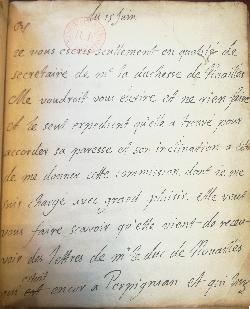 du 15 juin
je vous escris seulement en qualité de
secretaire de mᵉ la duchesse de Noailles
Elle voudroit vous écrire et ne rien faire
et le seul expedient qu'elle a trouvé pour
accorder sa paresse et son inclination a esté
de me donner cette commission, dont je me
suis chargé avec grand plaisir. Elle veut
vous faire sçavoir qu'elle vient de recev-
voir des lettres de mʳ le duc de Noailles
qui estoit encor a Perpignan et qui